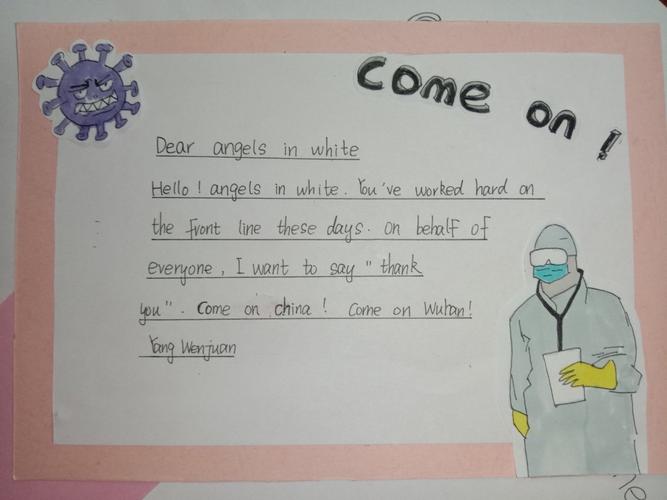 Come on !
Dear angels in white
Hello ! angels in white . You've worked hard on
the front line these days . on behalf of
everyone , I want to say " thank
you" . Come on china ! Come on Wuhan !
Yang Wenjuan